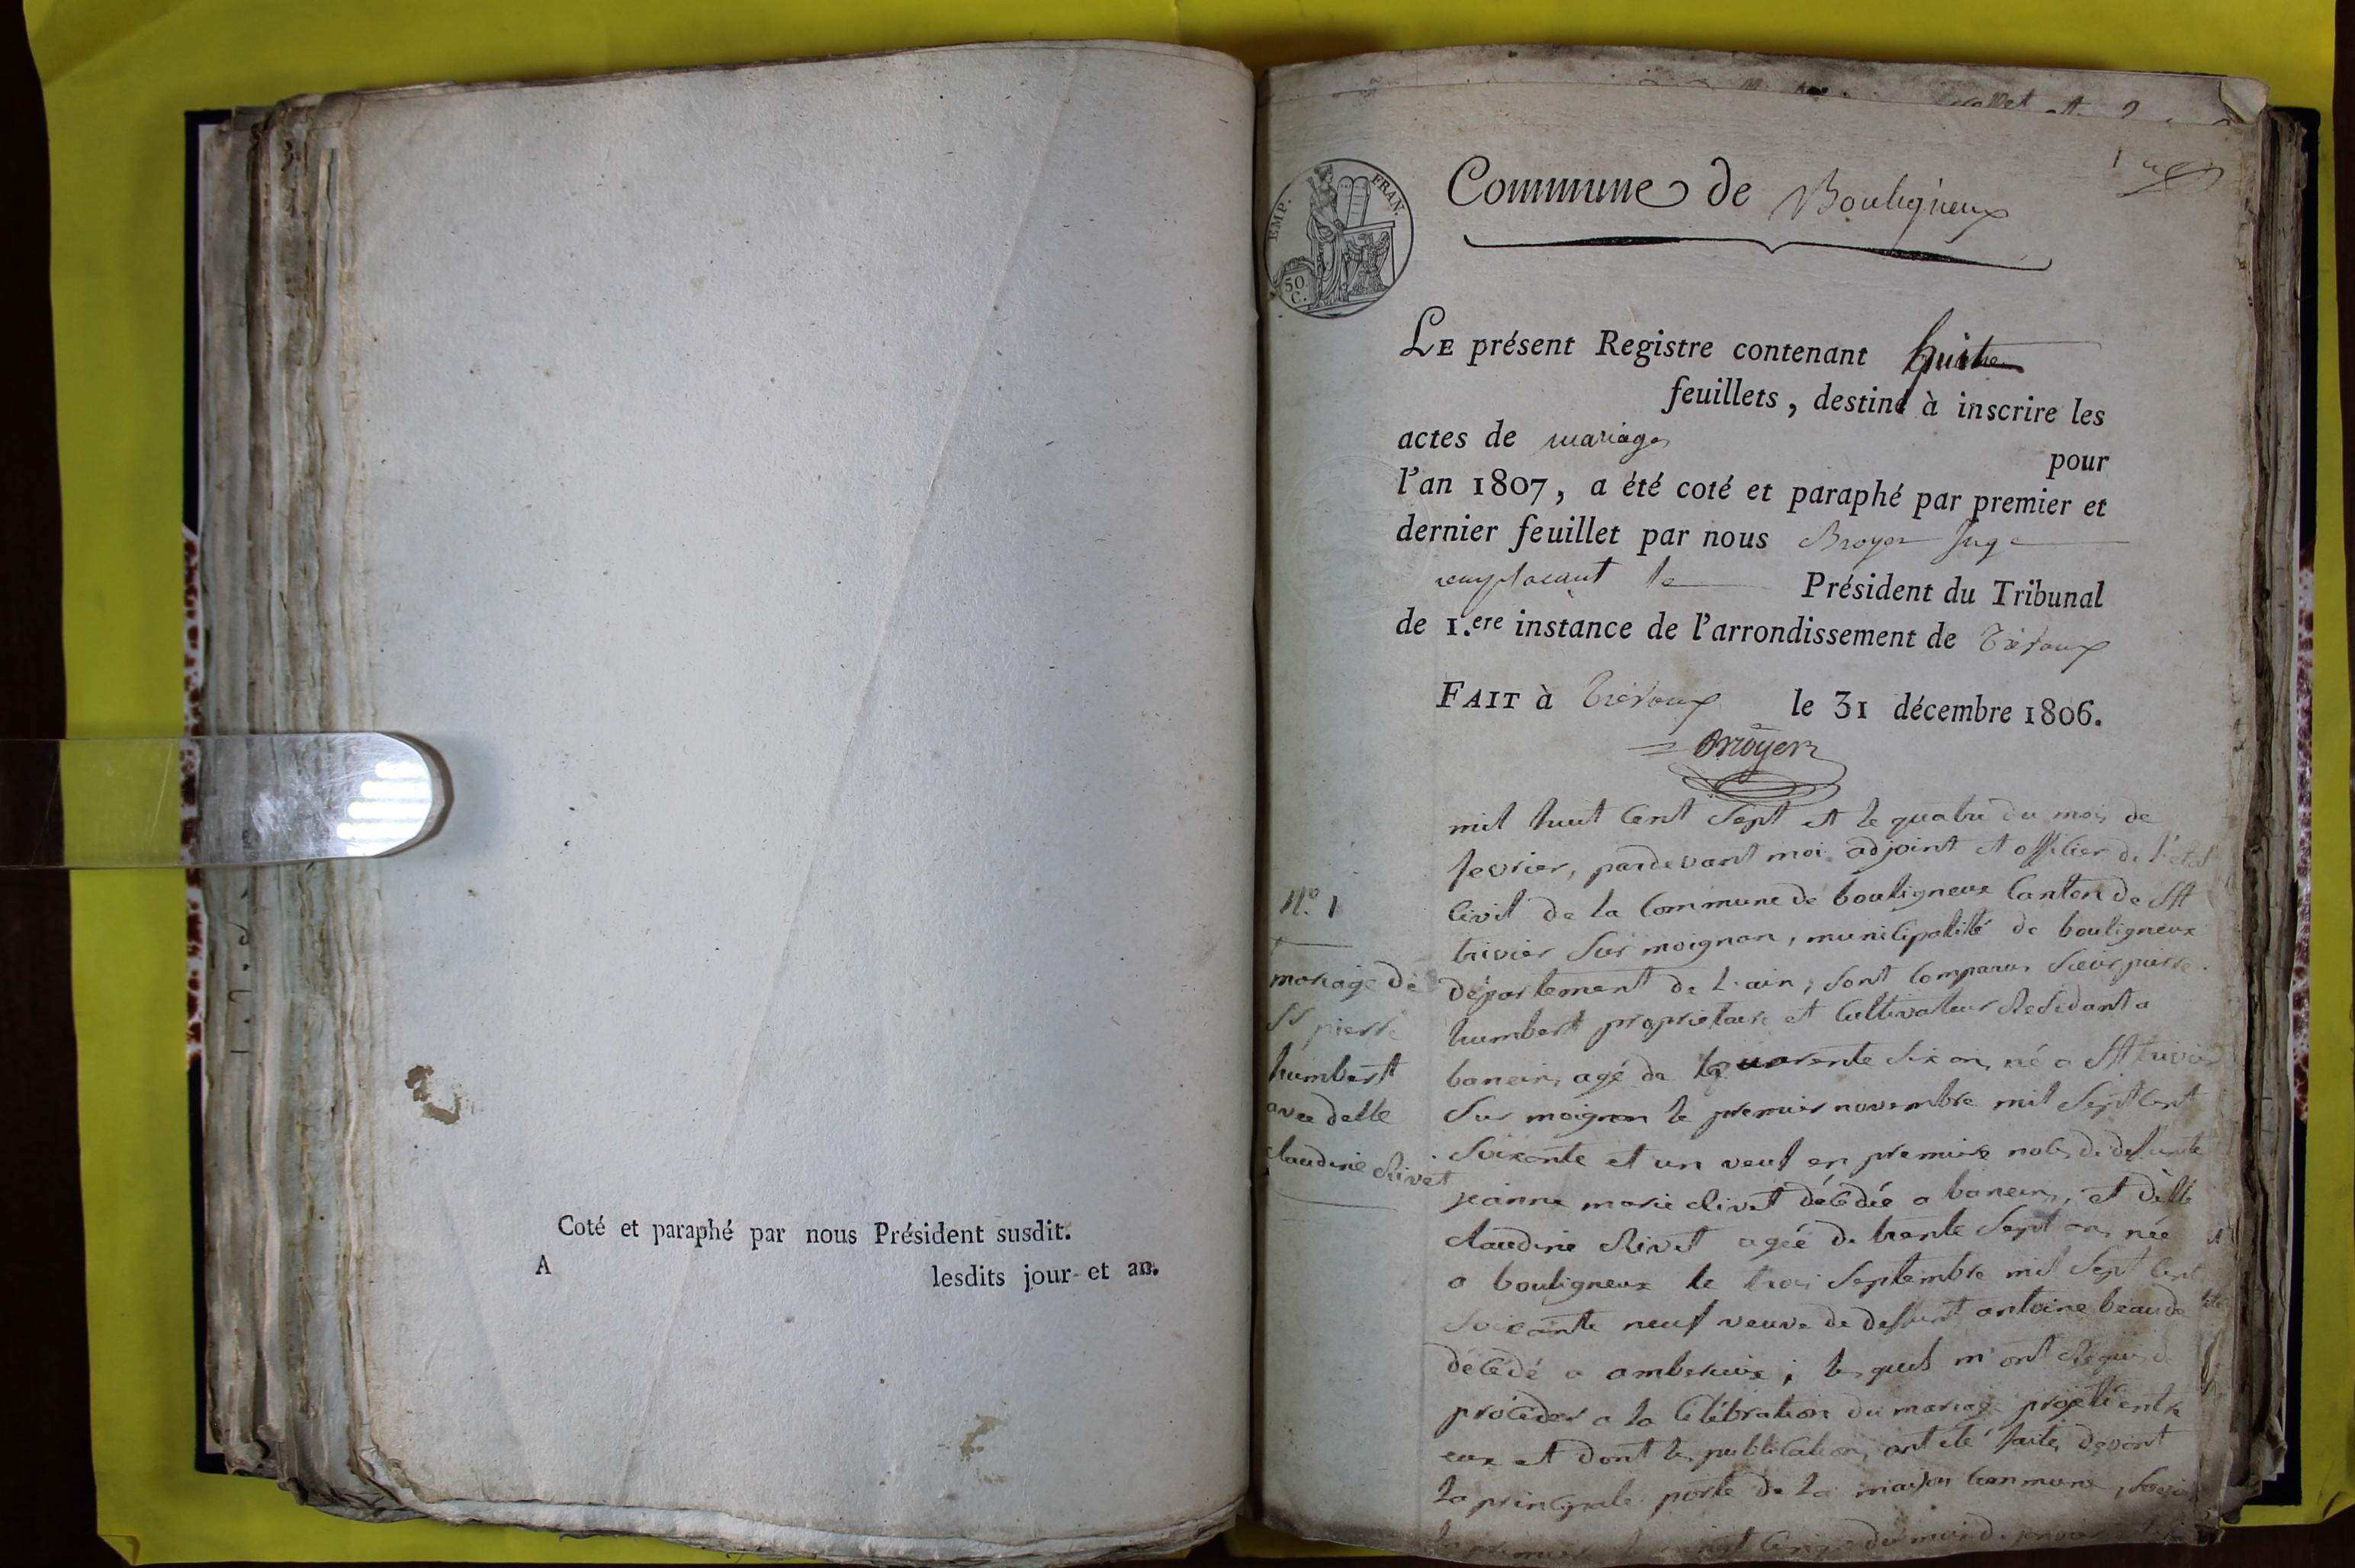 Coté et paraphé par nous Président susdit.
A lesdits jour et an.
EMP. FRAN.
50 C.
Commune de Bouligneux
LE présent Registre contenant huit
feuillets, destiné à inscrire les
actes de mariages
pour
l'an 1807, a été coté et paraphé par premier et
dernier feuillet par nous Broyer Juge
remplacant le Président du Tribunal
de 1.ere instance de l'arrondissement de Trévoux
FAIT à Trévoux le 31 décembre 1806.
Broyer
mil huit Cent Sept et le quatre du mois de
fevrier, pardevant moi adjoint et officier de l'etat
Civil de la Commune de bouligneux Canton de St
trivier Sur moignan, municipalité de bouligneux
département de l'ain, sont Comparus Sieur pierre
humbert proprietaire et Cultivateur Residant a
baneins, agé de quarente Six ans, né a St trivier
Sur moignan le premier novembre mil Sept Cent
Soixante et un veuf en premiere noces de defunte
jeanne marie Rivet décédée a baneins, et delle
claudine Rivet agée de trente Sept ans, née
a bouligneux le trois Septembre mil Sept Cent
Soixante neuf veuve de defunt antoine beaude
décédé a amberieux; les quels m'ont Requis de
procéder a la Célébration du mariage projetté entre
eux et dont les publications ont été faites devant
la principale porte de la maison Commune,
N.o 1
mariage de
Sr pierre
humbert
avec delle
claudine Rivet